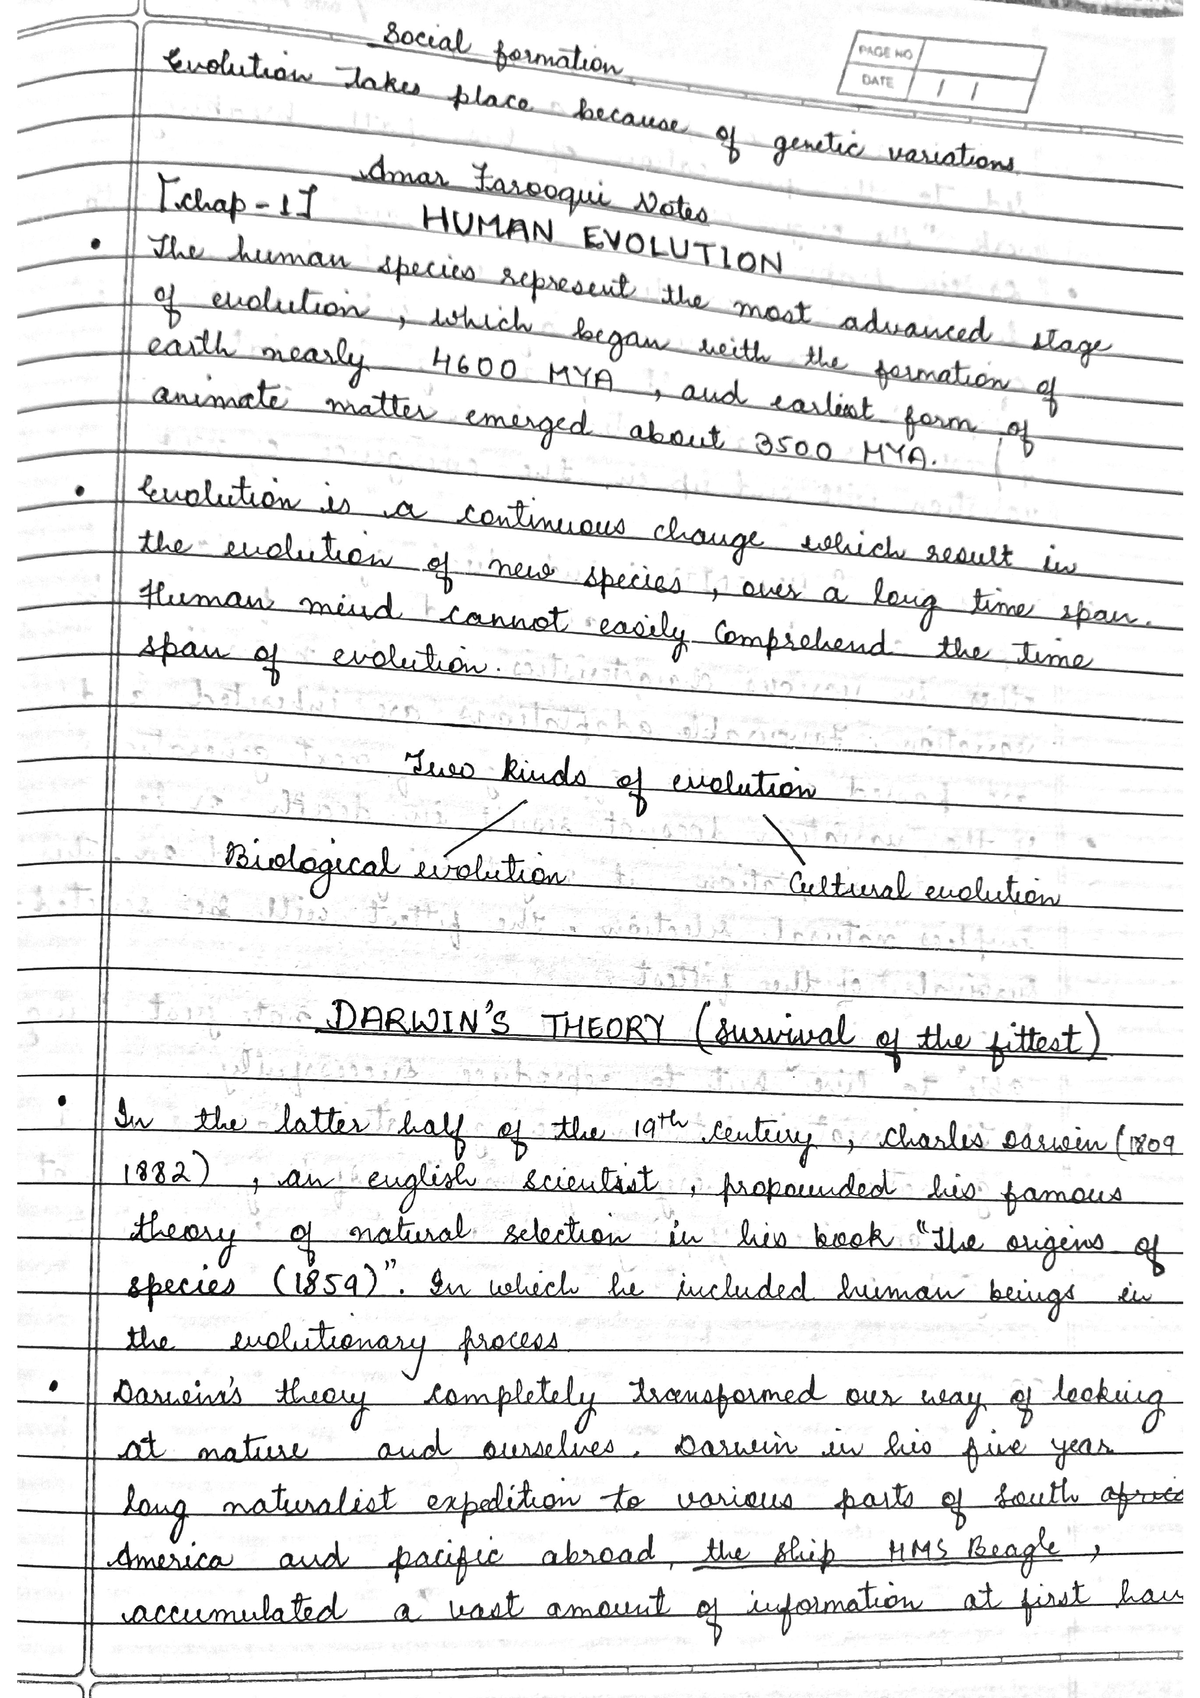 Social formation
PAGE NO
DATE / /
Evolution takes place because of genetic variations
Amar Farooqui Notes
[chap-1] HUMAN EVOLUTION
• The human species represent the most advanced stage
of evolution, which began with the formation of
earth nearly 4600 MYA, and earliest form of
animate matter emerged about 3500 MYA.
• Evolution is a continuous change which result in
the evolution of new species, over a long time span.
Human mind cannot easily comprehend the time
span of evolution.
Two kinds of evolution
Biological evolution Cultural evolution
DARWIN'S THEORY (survival of the fittest)
• In the latter half of the 19th century, Charles Darwin (1809
1882), an english scientist, propounded his famous
theory of natural selection in his book "The origins of
species (1859)". In which he included human beings in
the evolutionary process
• Darwin's theory completely transformed our way of looking
at nature and ourselves. Darwin in his five year
long naturalist expedition to various parts of South africa
America and pacific abroad, the ship HMS Beagle,
accumulated a vast amount of information at first han